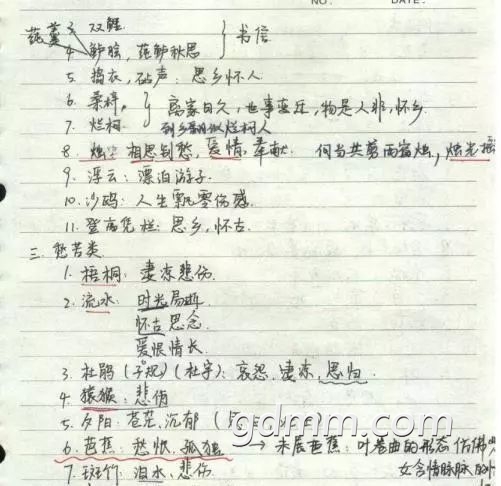 NO. DATE.
莼羹 3. 双鲤 } 书信
4. 鲈脍, 莼鲈秋思
5. 捣衣, 砧声: 思乡怀人.
6. 桑梓, } 离家日久, 世事变迁, 物是人非, 怀乡
7. 烂柯: 到乡翻似烂柯人
8. 烛: 相思别愁, 爱情, 奉献. 何当共剪西窗烛, 烛光
9. 浮云: 漂泊游子.
10. 沙鸥: 人生飘零伤感.
11. 登高凭栏: 思乡, 怀古.
三. 愁苦类
1. 梧桐: 凄凉悲伤.
2. 流水: 时光易逝
怀古思念.
爱恨情长.
3. 杜鹃 (子规) (杜宇): 哀怨, 凄凉, 思归.
4. 猿猴: 悲伤
5. 夕阳: 苍茫, 沉郁
gdmm.com
6. 芭蕉: 愁恨, 孤独 → 未展芭蕉: 叶卷曲的形态仿佛
7. 斑竹: 泪水, 悲伤. 女含情脉脉的